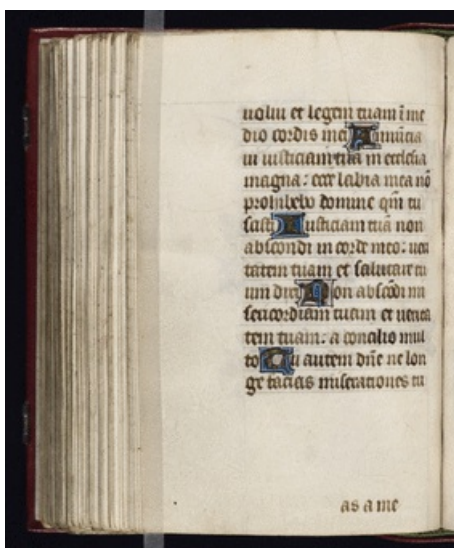 uolui et legem tuam ĩ me
dio cordis mei Annũcia
ui iusticiam tuã in ecclesia
magna: ecce labia mea nõ
prohibebo domine qm̃ tu
scisti Iusticiam tuã non
abscondi in corde meo: ueri
tatem tuam et salutare tu
um dixi Non abscõdi mi
sericordiam tuam et uerita
tem tuam: a concilio mul
to Tu autem dñe ne lon
ge facias miserationes tu
as a me